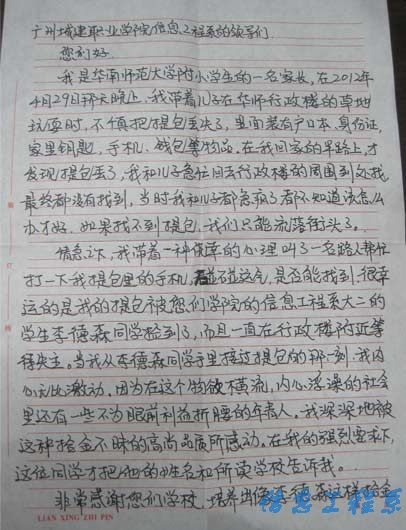 广州城建职业学院信息工程系的领导们:
您们好.
我是华南师范大学附小学生的一名家长, 在2012年
4月29日那天晚上, 我带着儿子在华师行政楼的草地
玩耍时, 不慎把提包丢失了, 里面装有户口本、身份证,
家里钥匙, 手机、钱包等物品. 在我回家的半路上, 才
发现提包丢了, 我和儿子急忙回去行政楼的周围到处找,
最终都没有找到, 当时我和儿子都急疯了都不知道该怎么
办才好, 如果找不到提包, 我们只能流落街头了。
情急之下, 我带着一种侥幸的心理叫了一名路人帮忙
打一下我提包里的手机, 碰碰运气, 是否能找到. 很幸
运的是我的提包被您们学院的信息工程系大二的
学生李德森同学捡到了, 而且一直在行政楼附近等
待失主。当我从李德森同学手里接过提包的那一刻, 我内
心无比激动. 因为在这个物欲横流, 内心浮躁的社会
里还有一些不为眼前利益折腰的年青人。我深深地被
这种拾金不昧的高尚品质所感动. 在我的强烈要求下,
这位同学才把他的姓名和所读学校告诉我。
非常感谢您们学校, 培养出像李德森这样拾金
LIAN XING ZHI PIN
信息工程系